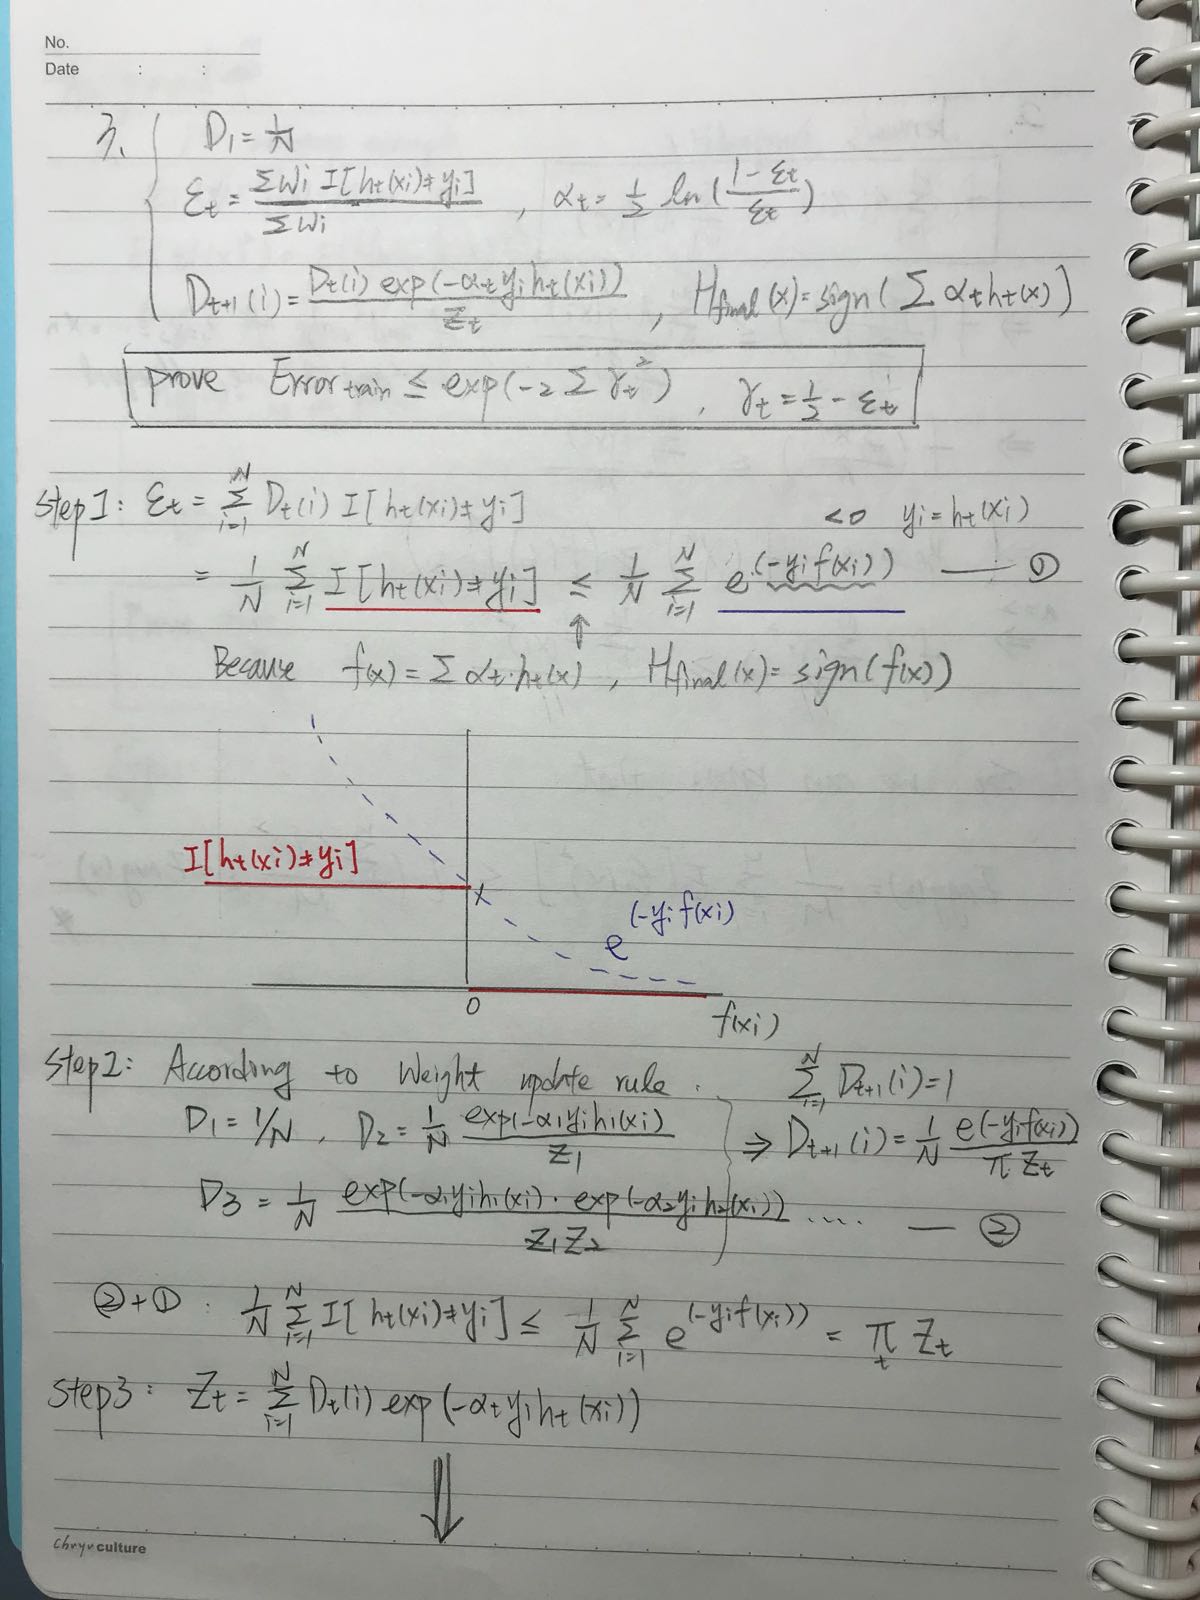 No.
Date : :
3. D₁ = 1/N
εt = ΣWi I[ht(xi)≠yi] / ΣWi , αt = 1/2 ln(1-εt / εt)
Dt+1(i) = Dt(i) exp(-αt yi ht(xi)) / Zt , Hfinal(x) = sign(Σ αt ht(x))
prove Error train ≤ exp(-2 Σ γt²) , γt = 1/2 - εt
Step1: εt = Σ_{i=1}^{N} Dt(i) I[ht(xi)≠yi] <0 yi = ht(xi)
= 1/N Σ_{i=1}^{N} I[ht(xi)≠yi] ≤ 1/N Σ_{i=1}^{N} e^(-yi f(xi)) — ①
Because f(x) = Σ αt·ht(x) , Hfinal(x) = sign(f(x))
I[ht(xi)≠yi]
e^(-yi f(xi))
0
f(xi)
Step2: According to Weight update rule . Σ_{i=1}^{N} Dt+1(i) = 1
D₁ = 1/N , D₂ = 1/N exp(-α₁yih₁(xi)) / Z₁ ⇒ Dt+1(i) = 1/N e(-yif(xi)) / π Zt
D3 = 1/N exp(-α₁yih₁(xi)) · exp(-α₂yih₂(xi)) / Z₁Z₂ .... — ②
②+① : 1/N Σ_{i=1}^{N} I[ht(xi)≠yi] ≤ 1/N Σ_{i=1}^{N} e^(-yif(xi)) = π_t Zt
Step3: Zt = Σ_{i=1}^{N} Dt(i) exp(-αt yi ht(xi))
⇓
culture